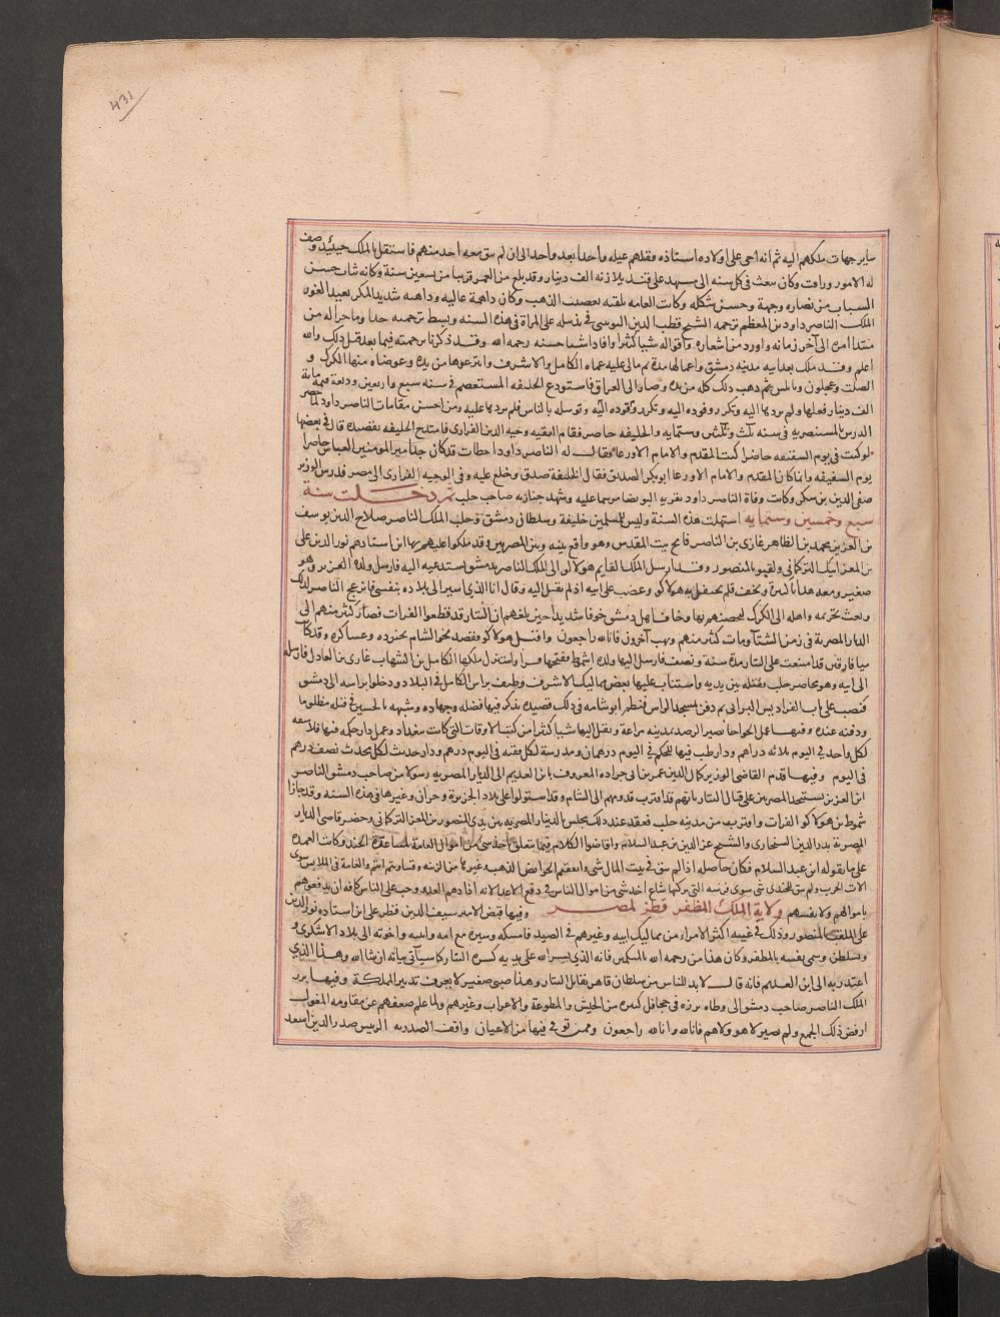 431
ساير جهات ملكهم اليه ثم انه اخنى على اولاده استاذه فقتلهم غيله واحدا بعد واحد الى ان لم يبق معه احد منهم فاستقل بالملك حينئذ وصفت
له الامور وراقت وكان يبعث في كل سنه الى مشهد على قنديلا زنته الف دينار وقد بلغ من العمر قريبا من تسعين سنة وكانه شاب حسن
الشباب من نضاره وجهه وحسن شكله وكانت العامه تلقبه بقضيب الذهب وكان داهية عاليه وداهيه شديد المكر بعيد الغور
الملك الناصر داود بن المعظم ترجمه الشيخ قطب الدين اليونيني في ذيله على المراة في هذه السنه وبسط ترجمته جدا وما جرا له من
مبتدا امره الى آخر زمانه واورد من اشعاره واقواله شيا كثيرا وافاد اشيا حسنه رحمه الله وقد ذكرنا ترجمته فيما بعد نقل ذلك والله
اعلم وقد ملك بعد ابيه مدينه دمشق واعمالها مدة ثم مالى عليه عماه الكامل والاشرف وانتزعوها من يده وعوضاه منها الكرك و
الصلت وعجلون ونابلس ثم ذهب ذلك كله من يده وصار الى العراق فاستودع الخليفه المستعصم في سنه سبع واربعين وديعة قيمه ماية
الف دينار فغلها ولم يردها اليه وتكرر وفوده اليه وتكرر وفوده اليه وتوسله بالناس فلم يردها عليه ومن احسن مقامات الناصر داود لما حضر
الدرس بالمستنصريه في سنه ثلث وثلثين وستمايه والخليفه حاضر فقام الفقيه وجيه الدين الفزارى فامتدح الخليفه بقصيده قال في بعضها
لو كنت في يوم السقيفه حاضرا كنت المقدم والامام الاورعا فقال له الناصر داود اخطات قد كان جد امير المومنين العباس حاضرا
يوم السقيفه وانما كان المقدم والامام الاورعا ابو بكر الصديق فقال الخليفة صدق وخلع عليه ونفى الوجيه الفزارى الى مصر فدرس الوزير
صفى الدين بن سكر وكانت وفاة الناصر داود بقريه البويضا مرسما عليه وشهد جنازته صاحب حلب ثم دخلت سنة
سبع وخمسين وستمايه استهلت هذه السنة وليس للمسلمين خليفة وسلطان دمشق وحلب الملك الناصر صلاح الدين يوسف
بن العزيز محمد بن الظاهر غازى بن الناصر فاتح بيت المقدس وهو واقع بينه وبين المصريين وقد ملكوا عليهم بها ابن استادهم نور الدين على
بن المعز ايبك التركمانى ولقبوه بالمنصور وقد ارسل الملك الغايم هولاكو الى الملك الناصر بدمشق يستدعيه اليه فارسل ولده العزيز وهو
صغير ومعه هدايا كثيرة وتحف فلم يحتفل به هولاكو وغضب على ابيه اذ لم يقبل اليه وقال انا الذى اسير الى بلاده بنفسى فانزعج الناصر لذلك
وبعث بحريمه واهله الى الكرك ليحصنهم بها وخاف اهل دمشق خوفا شديدا حين بلغهم ان التتار قد قطعوا الفرات فصار كثير منهم الى
الديار المصرية في زمن الشتا ومات كثير منهم ونهب آخرون فانا لله راجعون واقبل هولاكو فقصد نحو الشام بجنوده وعساكره وقد كانت
ميافارقين قد امتنعت على التتار مدة سنة ونصف فارسل اليها ولده اشموط فافتتحها قسرا واستنزل ملكها الكامل بن الشهاب غازى بن العادل فارسله
الى ابيه وهو يحاصر حلب فقتله بين يديه واستناب عليها بعض مماليك الاشرف وطيف براس الكامل في البلاد ودخلوا براسه الى دمشق
فنصب على باب الفراديس البرانى ثم دفن بمسجد الراس فنظم ابو شامه في ذلك قصيده يذكر فيها فضله وجهاده وشبهه بالحسين في قتله مظلوما
ودفنه عنده وفيها عمل الخواجا نصير الرصد بمدينه مراغه ونقل اليها شيا كثيرا من كتب الاوقات التى كانت ببغداد وعمل دار حكمه فيها فلاسفه
لكل واحد في اليوم ثلاثه دراهم ودار طب فيها للحكيم في اليوم درهمان ومدرسة لكل فقيه في اليوم درهم ودار حديث لكل محدث نصف درهم
في اليوم وفيها قدم القاضى الوزير كمال الدين عمر بن ابى جراده المعروف بابن العديم الى الديار المصريه رسولا من صاحب دمشق الناصر
ابن العزيز يستنجد المصريين على قتال التتار بانهم قد اقترب قدومهم الى الشام وقد استولوا على بلاد الجزيرة وحران وغيرها في هذه السنه وقد جاز
شموط بن هولاكو الفرات واقترب من مدينه حلب فعقد عند ذلك مجلس بالديار المصريه بين يدى المنصور بن المعز التركمانى وحضر قاضى الديار
المصرية بدر الدين السنجارى والشيخ عز الدين بن عبد السلام وافاضوا الكلام فيما يتعلق باخذ شى من اموال العامة لمساعدة الجند وكانت العمدة
على ما يقوله ابن عبد السلام فكان حاصله اذا لم يبق في بيت المال شى وانفقتم الحوايض الذهبيه وغيرها من الزينه وتساويتم انتم والعامة في الملابس سوى
الات الحرب ولم يبق للجندى شى سوى فرسه التى يركبها ساغ اخذ شى من اموال الناس في دفع الاعدا لانه اذا دهم العدو وجب على الناس كافه ان يدفعوهم
باموالهم ولا بنفسهم ولاية الملك المظفر قطز لمصر وفيها قبض الامير سيف الدين قطز على ابن استاده نور الدين
على الملقب بالمنصور وذلك في غيبه اكثر الامراء من مماليك ابيه وغيرهم في الصيد فامسكه وسيره مع امه وابنيه واخوته الى بلاد الاشكرى و
وتسلطن وسمى نفسه بالمظفر وكان هذا من رحمه الله بالمسلمين فانه الذى يسر الله على يديه كسره التتار كما سياتى بيانه ان شا الله وهذا الذى
اعتذر به الى ابن العديم فانه قال لا بد للناس من سلطان قاهر يقاتل التتار وهذا صبى صغير لا يعرف تدبير المملكة وفيها برز
الملك الناصر صاحب دمشق الى وطاه برزه في جحافل كثيره من الجيش والمطوعة والاعراب وغيرهم ولما علم ضعفهم عن مقاومه المغول
ارفض ذلك الجمع ولم يصبر لا هو ولا هم فانا لله وانا لله راجعون وممن توفى فيها من الاعيان واقف الصدريه الرييس صدر الدين اسعد